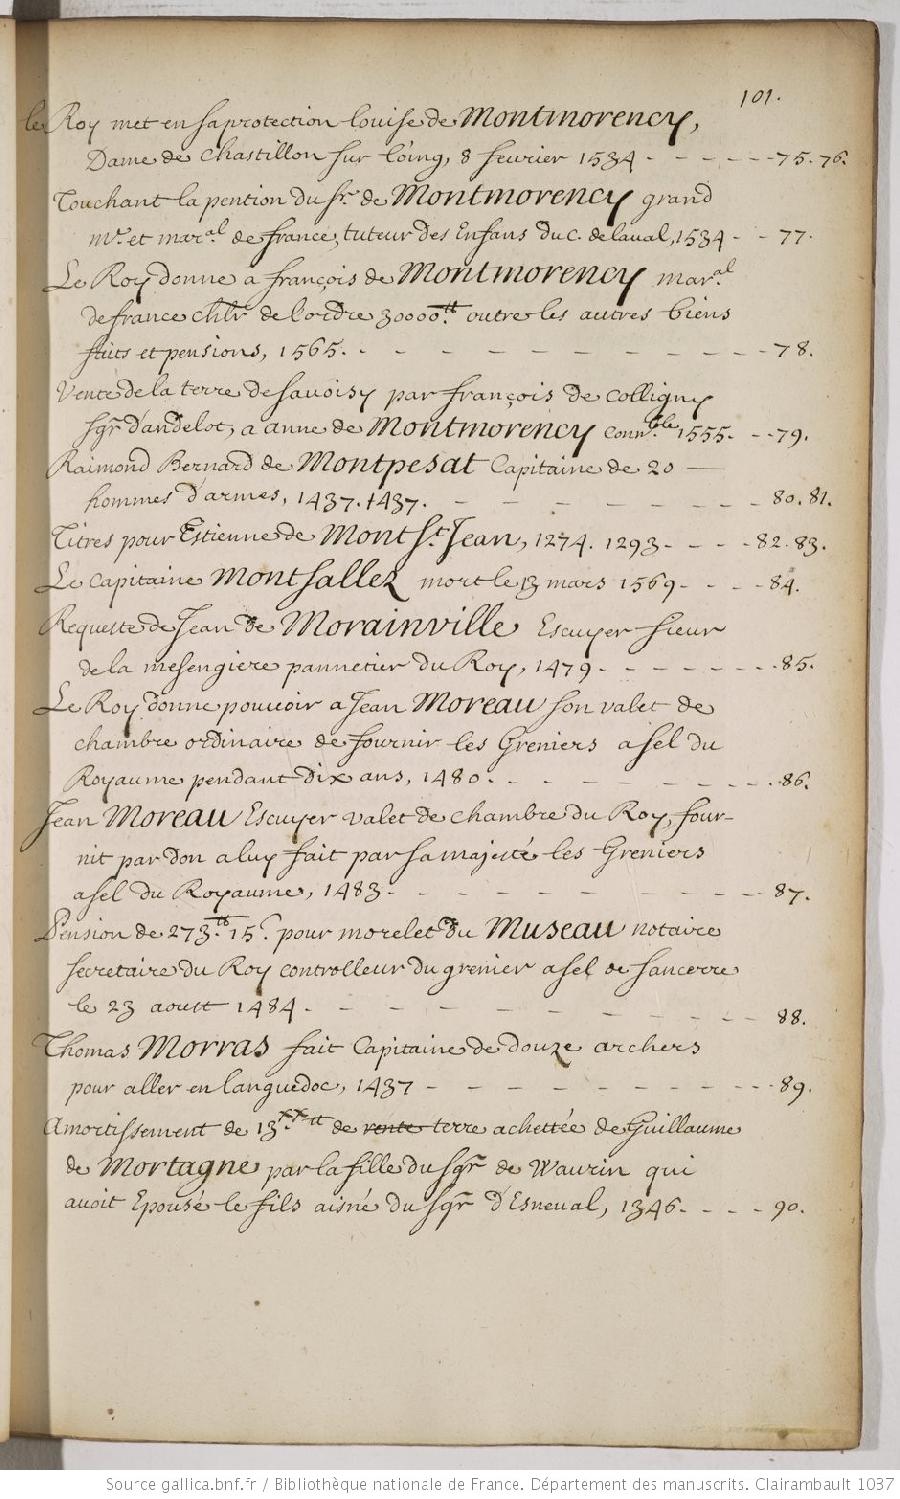 101.
le Roy met en sa protection louise de Montmorency,
Dame de chastillon sur loing, 8 fevrier 1534 - - - - - - 75. 76.
Touchant la pention du sr. de Montmorency grand
mr. et mar.al de france, tuteur des Enfans du c. de laval, 1534 - - 77.
Le Roy donne a françois de Montmorency mar.al
de france chlr de l'ordre 30000.tt outre les autres biens
faits et pensions, 1565. - - - - - - - - - - - 78.
Vente de la terre de savoisy par françois de Colligny
sgr d'andelot, a anne de Montmorency Conn.ble 1555. - - 79.
Raimond Bernard de Montpesat Capitaine de 20 —
hommes d'armes, 1437. 1437. - - - - - - - - - 80. 81.
Titres pour Estienne de Mont St. Jean, 1274. 1293 - - - - 82. 83.
Le Capitaine Montsallez mort le 13 mars 1569 - - - - 84.
Requeste de Jean de Morainville Escuyer sieur
de la mesengiere pannetier du Roy, 1479 - - - - - - - 85.
Le Roy donne pouvoir a Jean Moreau son valet de
chambre ordinaire de fournir les Greniers a sel du
Royaume pendant dix ans, 1480. - - - - - - - - 86.
Jean Moreau Escuyer valet de chambre du Roy, four-
nit par don a luy fait par sa majesté les Greniers
a sel du Royaume, 1483 - - - - - - - - - - 87.
Pension de 273.tt 15.s pour morelet du Museau notaire
secretaire du Roy controlleur du grenier a sel de sancerre
le 23 aoust 1484 - - - - - - - - - - - 88.
Thomas Morras fait Capitaine de douze archers
pour aller en languedoc, 1437 - - - - - - - - - 89.
Amortissement de 13.xx tt de rente terre achettée de Guillaume
de Mortagne par la fille du sgr de Waurin qui
avoit Epousé le fils aisné du sgr d'Esneval, 1346 - - - - 90.
Source gallica.bnf.fr / Bibliothèque nationale de France. Département des manuscrits. Clairambault 1037